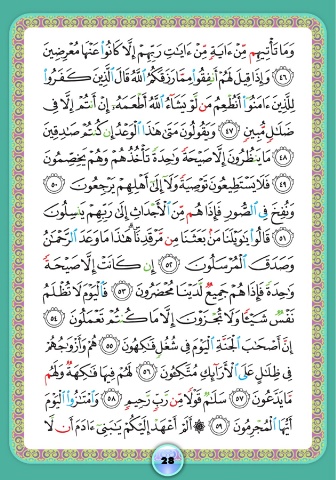 وَمَا تَأْتِيهِم مِّنْ ءَايَةٍ مِّنْ ءَايَٰتِ رَبِّهِمْ إِلَّا كَانُوا۟ عَنْهَا مُعْرِضِينَ
﴿٤٦﴾ وَإِذَا قِيلَ لَهُمْ أَنفِقُوا۟ مِمَّا رَزَقَكُمُ ٱللَّهُ قَالَ ٱلَّذِينَ كَفَرُوا۟
لِلَّذِينَ ءَامَنُوٓا۟ أَنُطْعِمُ مَن لَّوْ يَشَآءُ ٱللَّهُ أَطْعَمَهُۥٓ إِنْ أَنتُمْ إِلَّا فِى
ضَلَٰلٍ مُّبِينٍ ﴿٤٧﴾ وَيَقُولُونَ مَتَىٰ هَٰذَا ٱلْوَعْدُ إِن كُنتُمْ صَٰدِقِينَ
﴿٤٨﴾ مَا يَنظُرُونَ إِلَّا صَيْحَةً وَٰحِدَةً تَأْخُذُهُمْ وَهُمْ يَخِصِّمُونَ
﴿٤٩﴾ فَلَا يَسْتَطِيعُونَ تَوْصِيَةً وَلَآ إِلَىٰٓ أَهْلِهِمْ يَرْجِعُونَ ﴿٥٠﴾
وَنُفِخَ فِى ٱلصُّورِ فَإِذَا هُم مِّنَ ٱلْأَجْدَاثِ إِلَىٰ رَبِّهِمْ يَنسِلُونَ
﴿٥١﴾ قَالُوا۟ يَٰوَيْلَنَا مَنۢ بَعَثَنَا مِن مَّرْقَدِنَا هَٰذَا مَا وَعَدَ ٱلرَّحْمَٰنُ
وَصَدَقَ ٱلْمُرْسَلُونَ ﴿٥٢﴾ إِن كَانَتْ إِلَّا صَيْحَةً
وَٰحِدَةً فَإِذَا هُمْ جَمِيعٌ لَّدَيْنَا مُحْضَرُونَ ﴿٥٣﴾ فَٱلْيَوْمَ لَا تُظْلَمُ
نَفْسٌ شَيْـًٔا وَلَا تُجْزَوْنَ إِلَّا مَا كُنتُمْ تَعْمَلُونَ ﴿٥٤﴾
إِنَّ أَصْحَٰبَ ٱلْجَنَّةِ ٱلْيَوْمَ فِى شُغُلٍ فَٰكِهُونَ ﴿٥٥﴾ هُمْ وَأَزْوَٰجُهُمْ
فِى ظِلَٰلٍ عَلَى ٱلْأَرَآئِكِ مُتَّكِـُٔونَ ﴿٥٦﴾ لَهُمْ فِيهَا فَٰكِهَةٌ وَلَهُم
مَّا يَدَّعُونَ ﴿٥٧﴾ سَلَٰمٌ قَوْلًا مِّن رَّبٍّ رَّحِيمٍ ﴿٥٨﴾ وَٱمْتَٰزُوا۟ ٱلْيَوْمَ
أَيُّهَا ٱلْمُجْرِمُونَ ﴿٥٩﴾ ۞ أَلَمْ أَعْهَدْ إِلَيْكُمْ يَٰبَنِىٓ ءَادَمَ أَن لَّا
28